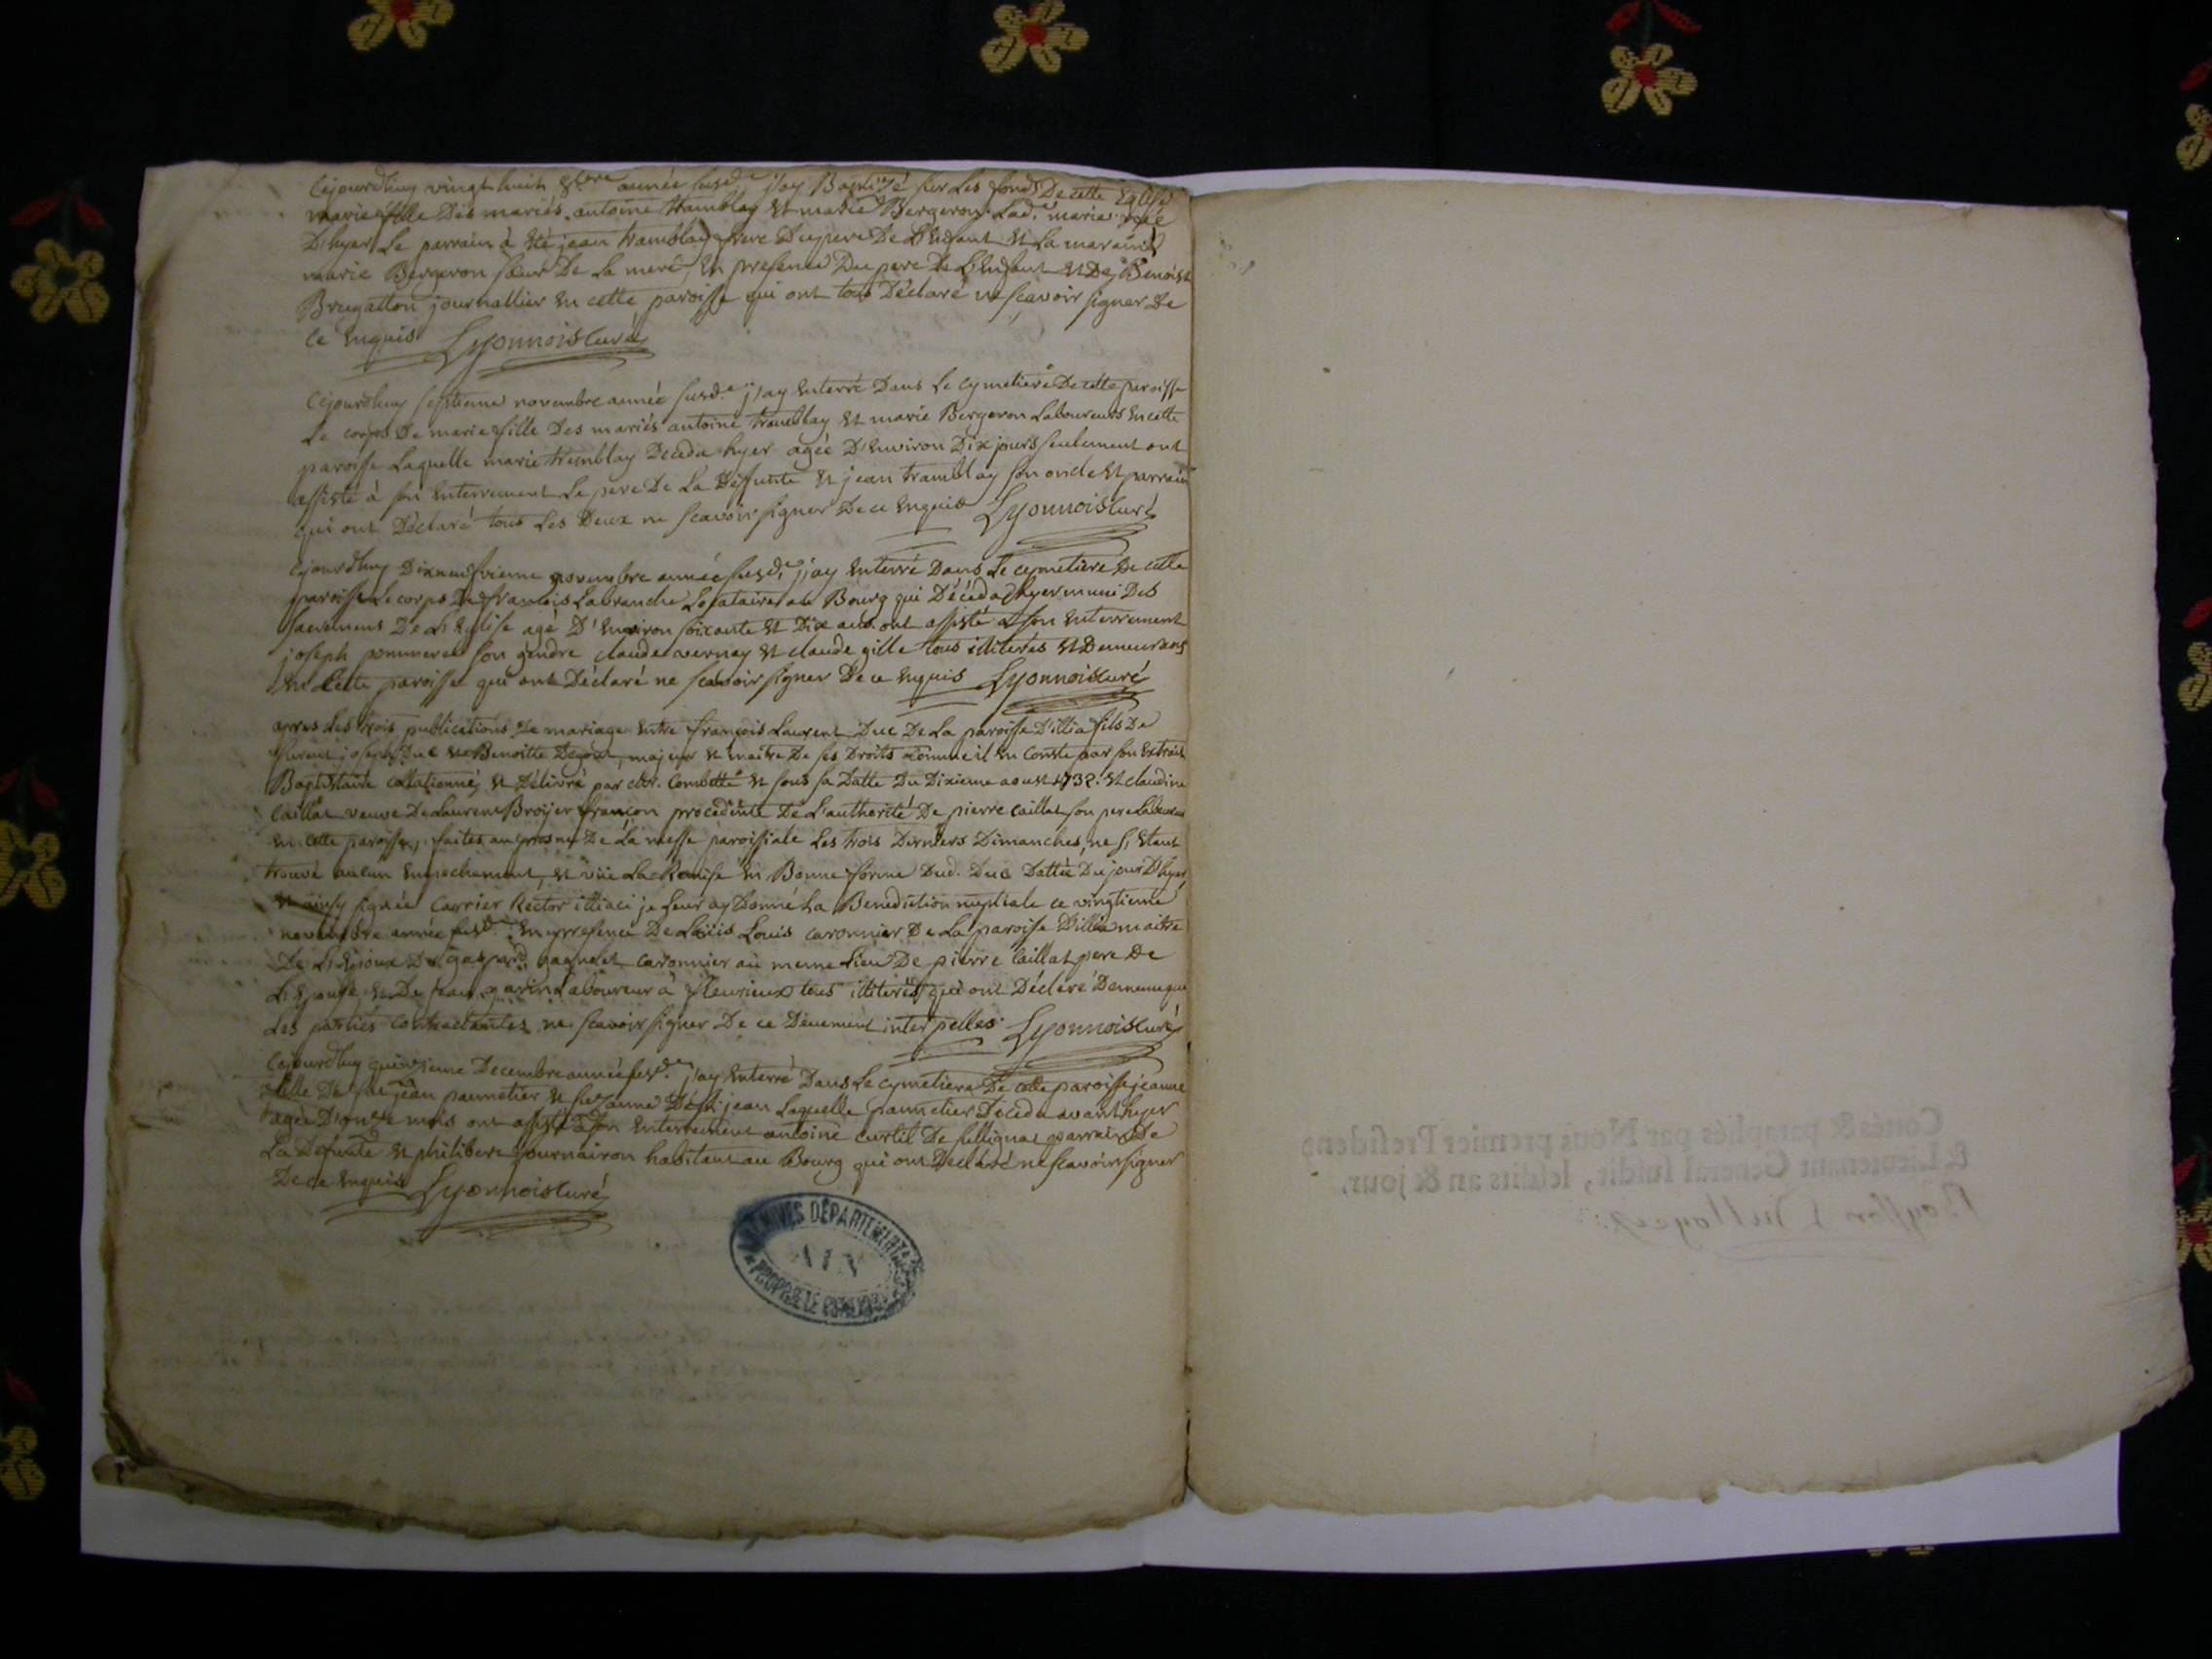 Cejourdhuy vingt huit 8bre année susde j'ay Baptizé sur Les fonds De cette Eglise
marie fille Des mariés antoine tramblay et marie Bergeron Lade marie née
D'hyer Le parrain à été jean tramblay frere Du pere De L'enfant et La maraine
marie Bergeron sœur De La mere En presence Du pere De L'enfant et De Benoist
journallier en cette paroisse qui ont tous Déclaré ne sçavoir signer De
ce Enquis Lyonnois Curé
Cejourdhuy septieme novembre année susde j'ay Enterré Dans Le Cymetiere De cette paroisse
Le corps De marie fille Des mariés antoine tramblay et marie Bergeron Laboureurs En cette
paroisse Laquelle marie tremblay Deceda hyer agée D'environ Dix jours seulement ont
assisté à son Enterrement Le pere De La Defunte et jean tramblay son oncle et parrain
qui ont Déclaré tous Les Deux ne scavoir signer De ce Enquis Lyonnois Curé
Cejourdhuy Dixneufvieme novembre année susde j'ay Enterré Dans Le cymetiere De cette
paroisse Le corps De francois Labranche Locataire au Bourg qui Décéda hyer muni Des
sacremens De L'Eglise agé D'environ soixante et Dix ans ont assisté a son Enterrement
joseph son gendre claude vernay et claude gille tous illiterés et Demeurans
En Cette paroisse qui ont Déclaré ne scavoir signer De ce Enquis Lyonnois Curé
apres Les trois publications De mariage Entre françois Laurent Duc De La paroisse D'illia fils De
joseph Duc et Benoitte majeur et maitre De ses Droits comme il En Conste par son Extrait
Baptistaire collationné et Délivré par Combette et sous sa Datte Du Dixieme aoust 1732. et claudine
Caillat veuve De Laurent Broyer françon procedente De L'authorité De pierre Caillat son pere Laboureur
En cette paroisse, faites au prosne De La messe paroissiale Les trois Derniers Dimanches, ne s'y Etant
trouvé aucun Empechement, et vüe La Remise En Bonne forme Dud. Duc Dattée Du jour D'hyer
et ainsy signée Carrier Rector illiaci je Leur ay Donné La Benediction nuptiale ce vingtieme
novembre année susde En presence De Loüis Louis caronnier De La paroisse D'illia maitre
De L'Epoux De gaspard caronnier au meme Lieu De pierre Caillat pere De
L'Epouse et De jean garin Laboureur à fleurieux tous illiterés qui ont Déclaré De meme que
Les parties contractantes ne scavoir signer De ce Düement interpelles Lyonnois Curé
Cejourdhuy quinzieme Decembre année susde j'ay Enterré Dans Le cymetiere De cette paroisse jeanne
fille De feu jean pannetier et suzanne jean Laquelle pannetier Deceda avanthyer
agée D'onze mois ont assisté à son Enterrement antoine curtil De sullignat parrain De
La Defunte et philibert fournairon habitant au Bourg qui ont Declaré ne scavoir signer
De ce Enquis Lyonnois Curé
ARCHIVES DÉPARTEMENTALES
AIN
PROPRIÉTÉ PUBLIQUE
Cottés & paraphés par Nous premier President
& Lieutenant General susdit, lesdits an & jour.